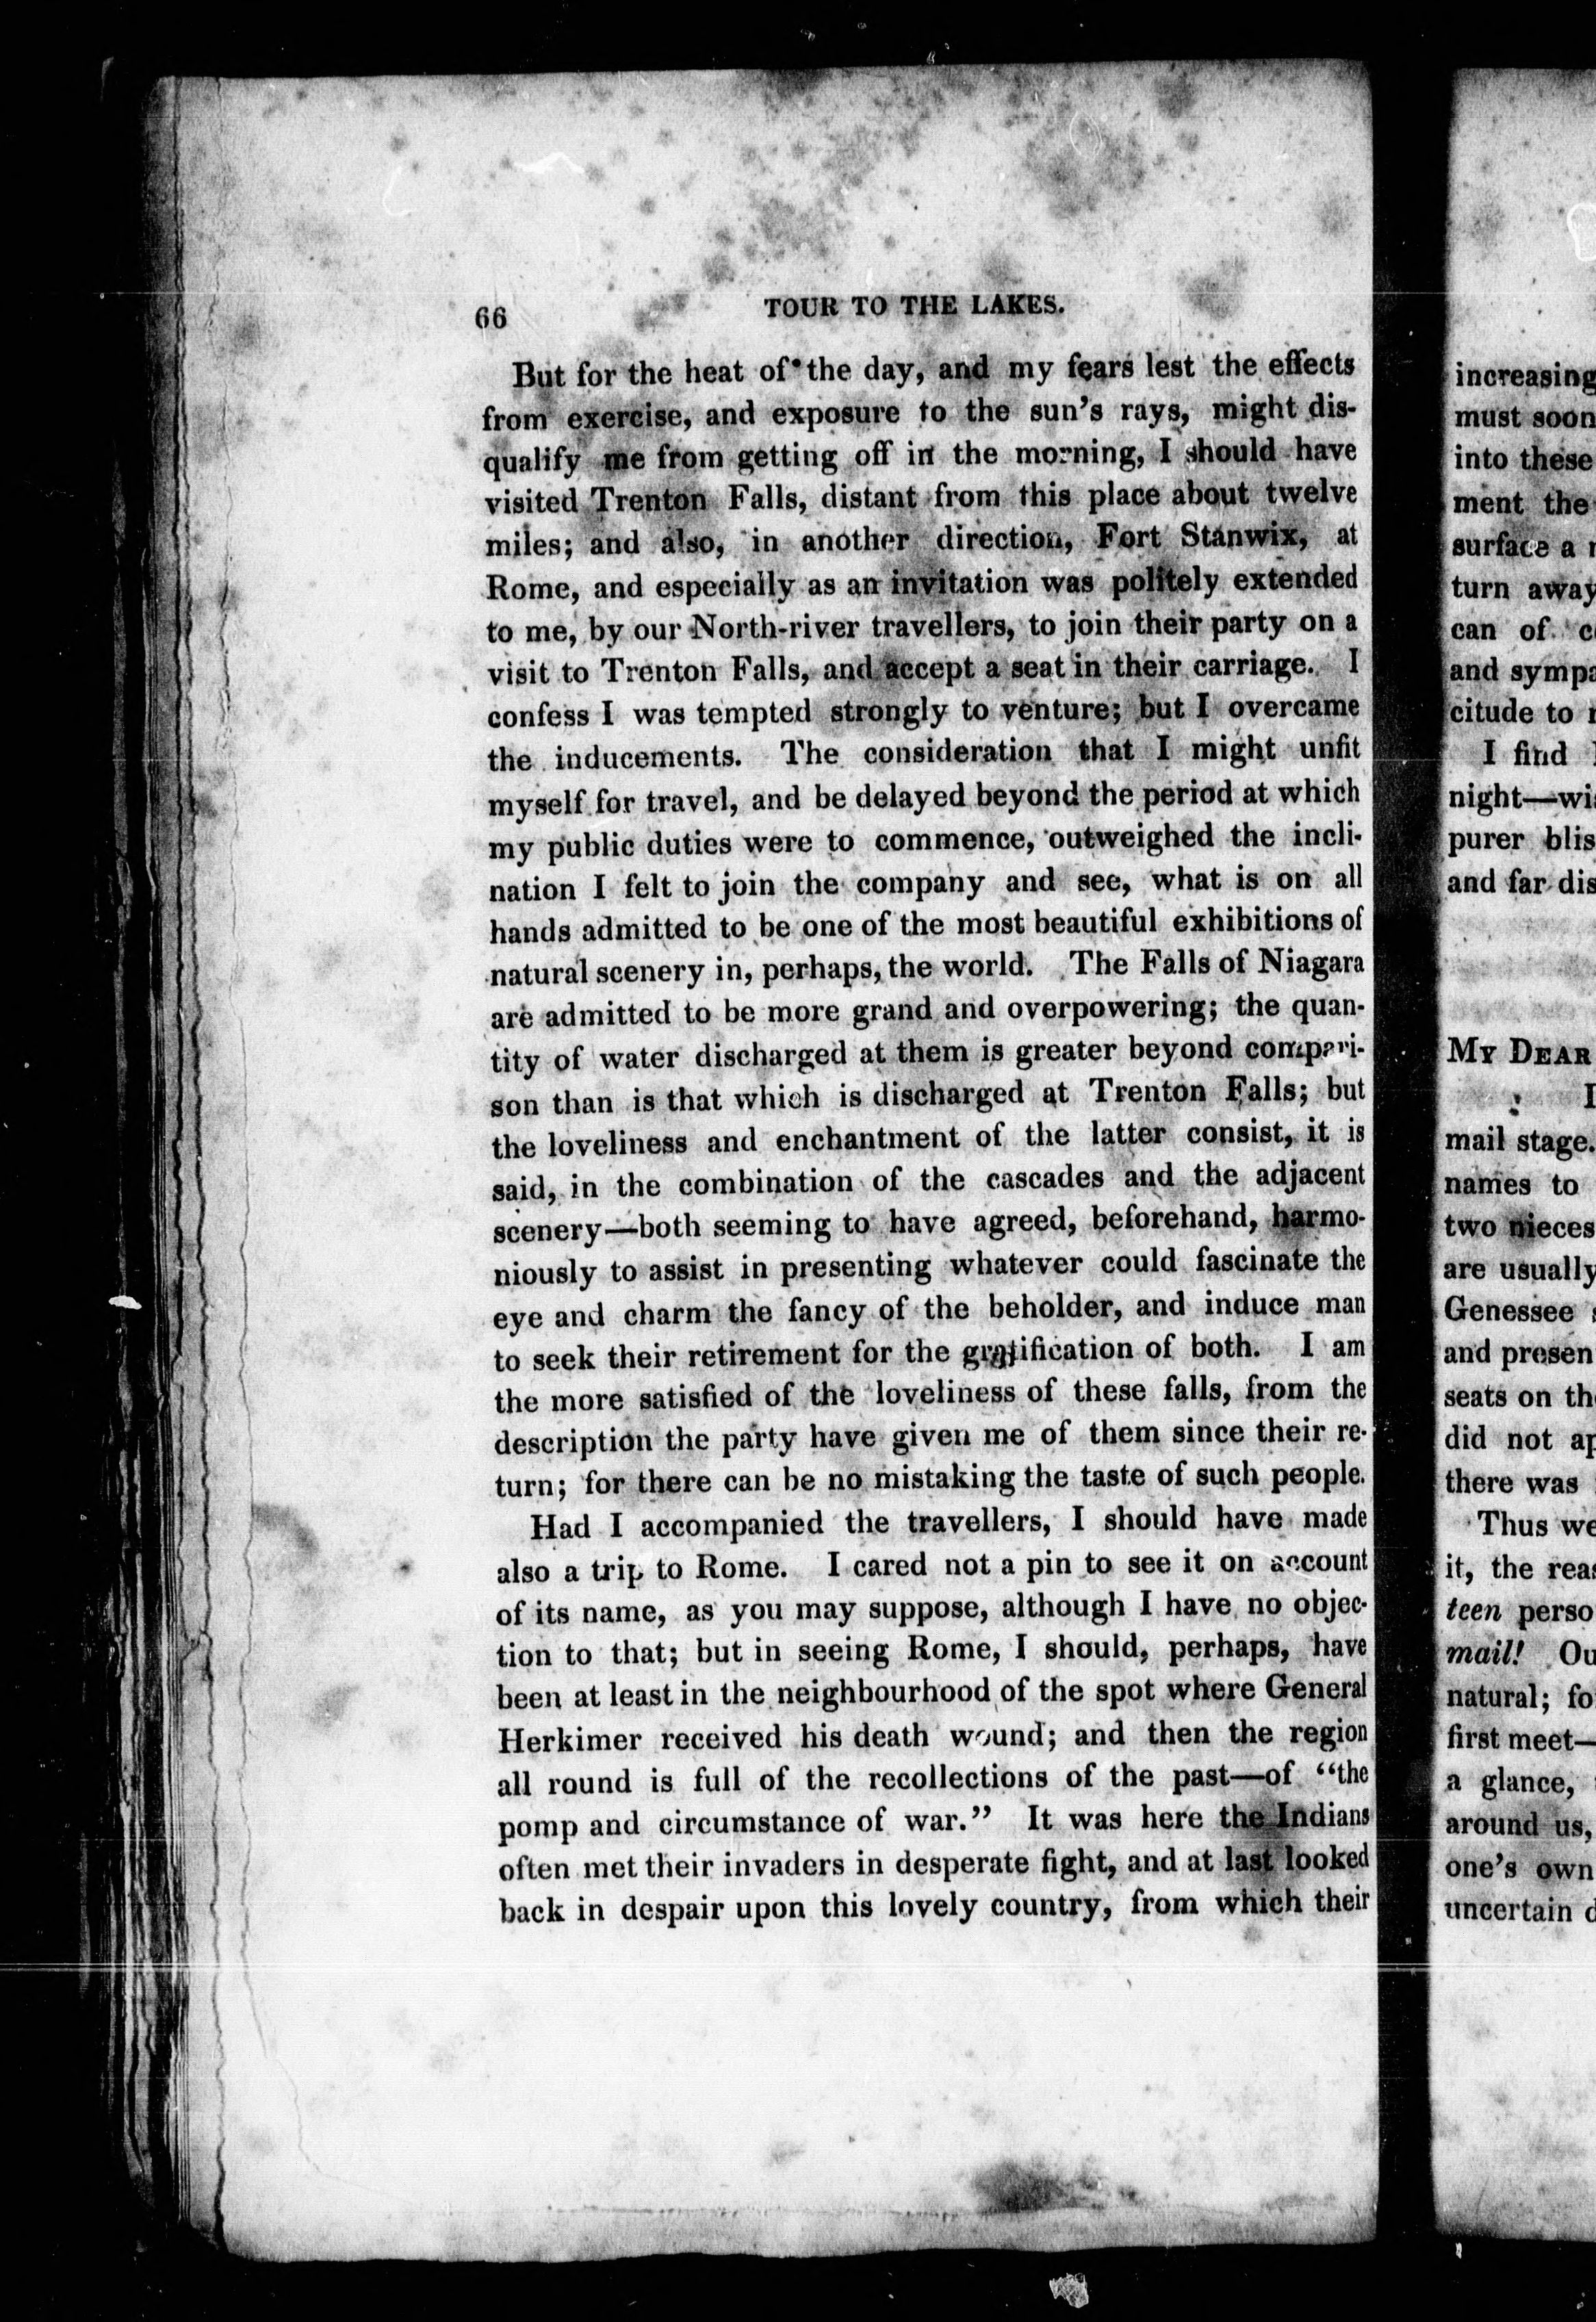 66
TOUR TO THE LAKES.
But for the heat of the day, and my fears lest the effects
from exercise, and exposure to the sun's rays, might dis-
qualify me from getting off in the morning, I should have
visited Trenton Falls, distant from this place about twelve
miles; and also, in another direction, Fort Stanwix, at
Rome, and especially as an invitation was politely extended
to me, by our North-river travellers, to join their party on a
visit to Trenton Falls, and accept a seat in their carriage. I
confess I was tempted strongly to venture; but I overcame
the inducements. The consideration that I might unfit
myself for travel, and be delayed beyond the period at which
my public duties were to commence, outweighed the incli-
nation I felt to join the company and see, what is on all
hands admitted to be one of the most beautiful exhibitions of
natural scenery in, perhaps, the world. The Falls of Niagara
are admitted to be more grand and overpowering; the quan-
tity of water discharged at them is greater beyond compari-
son than is that which is discharged at Trenton Falls; but
the loveliness and enchantment of the latter consist, it is
said, in the combination of the cascades and the adjacent
scenery—both seeming to have agreed, beforehand, harmo-
niously to assist in presenting whatever could fascinate the
eye and charm the fancy of the beholder, and induce man
to seek their retirement for the gratification of both. I am
the more satisfied of the loveliness of these falls, from the
description the party have given me of them since their re-
turn; for there can be no mistaking the taste of such people.
Had I accompanied the travellers, I should have made
also a trip to Rome. I cared not a pin to see it on account
of its name, as you may suppose, although I have no objec-
tion to that; but in seeing Rome, I should, perhaps, have
been at least in the neighbourhood of the spot where General
Herkimer received his death wound; and then the region
all round is full of the recollections of the past—of "the
pomp and circumstance of war." It was here the Indians
often met their invaders in desperate fight, and at last looked
back in despair upon this lovely country, from which their
increasing
must soon
into these
ment the
surface a
turn away
can of
and
citude to
I find
night—
purer
and far
MY DEAR
I
mail stage.
names to
two nieces
are usually
Genessee
and
seats on
did not
there was
Thus
it, the
teen
mail!
natural;
first meet—
a glance,
around us,
one's own
uncertain